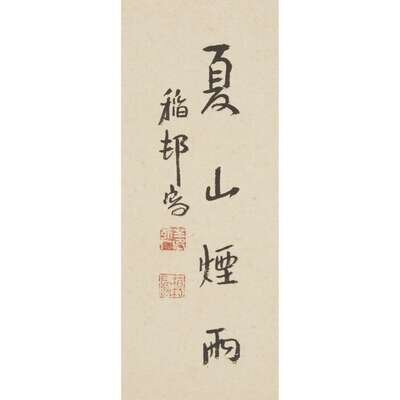 夏山煙雨
稲邨寫